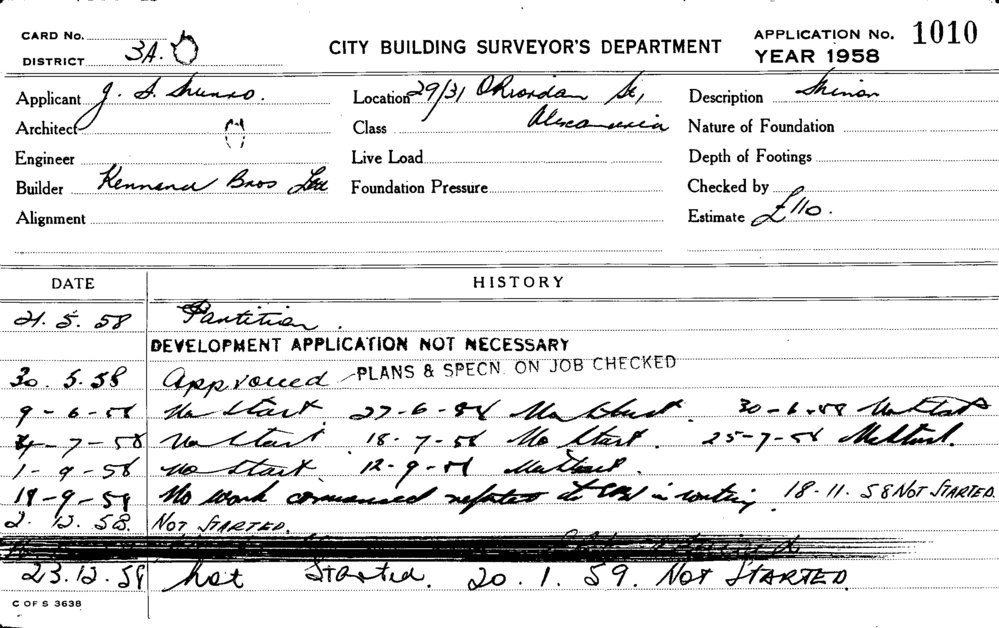 CARD No.
DISTRICT 3A.
CITY BUILDING SURVEYOR'S DEPARTMENT
APPLICATION No. 1010
YEAR 1958
Applicant J. S. Munro.
Location 29/31 ORiordan St,
Description Minor
Architect
Class Alexandria
Nature of Foundation
Engineer
Live Load
Depth of Footings
Builder Kennard Bros Ltd
Foundation Pressure
Checked by
Alignment
Estimate £110.
DATE HISTORY
21. 5. 58 Partition.
DEVELOPMENT APPLICATION NOT NECESSARY
30. 5. 58 Approved PLANS & SPECN. ON JOB CHECKED
9-6-58 No Start 27-6-58 No Start. 30-6-58 No Start
4-7-58 No Start. 18-7-58 No Start. 25-7-58 No Start.
1-9-58 No Start 12-9-58 No Start.
19-9-58 No work commenced in writing 18-11.58 NOT STARTED.
2. 12. 58. NOT STARTED.
23.12.58 not Started. 20.1.59. NOT STARTED
C OF S 3638